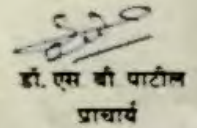 डॉ. एस बी पाटील
प्राचार्य